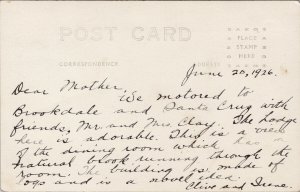 POST CARD
CORRESPONDENCE
ADDRESS
PLACE
STAMP
HERE
June 20, 1926.
Dear Mother,
We motored to
Brookdale and Santa Cruz with
friends, Mr. and Mrs. Clay. The Lodge
here is adorable. This is a view
of the dining room which has a
natural brook running through the
room. The building is made of
logs and is a novel idea.
Clive and Irene.